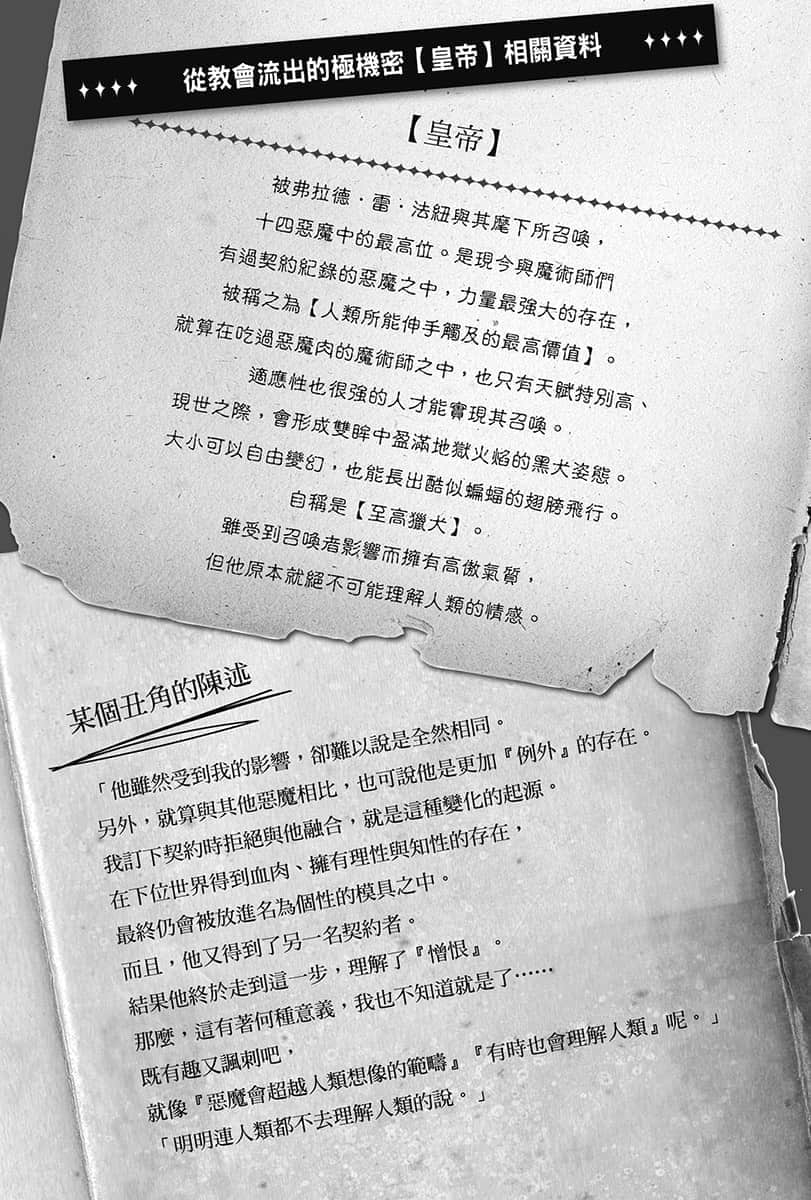 從教會流出的極機密【皇帝】相關資料
【皇帝】
被弗拉德・雷・法紐與其麾下所召喚，
十四惡魔中的最高位。是現今與魔術師們
有過契約紀錄的惡魔之中，力量最強大的存在，
被稱之為【人類所能伸手觸及的最高價值】。
就算在吃過惡魔肉的魔術師之中，也只有天賦特別高、
適應性也很強的人才能實現其召喚。
現世之際，會形成雙眸中盈滿地獄火焰的黑犬姿態。
大小可以自由變幻，也能長出酷似蝙蝠的翅膀飛行。
自稱是【至高獵犬】。
雖受到召喚者影響而擁有高傲氣質，
但他原本就絕不可能理解人類的情感。
某個丑角的陳述
「他雖然受到我的影響，卻難以說是全然相同。
另外，就算與其他惡魔相比，也可說他是更加『例外』的存在。
我訂下契約時拒絕與他融合，就是這種變化的起源。
在下位世界得到血肉、擁有理性與知性的存在，
最終仍會被放進名為個性的模具之中。
而且，他又得到了另一名契約者。
結果他終於走到這一步，理解了『憎恨』。
那麼，這有著何種意義，我也不知道就是了……
既有趣又諷刺吧，
就像『惡魔會超越人類想像的範疇』『有時也會理解人類』呢。」
「明明連人類都不去理解人類的說。」